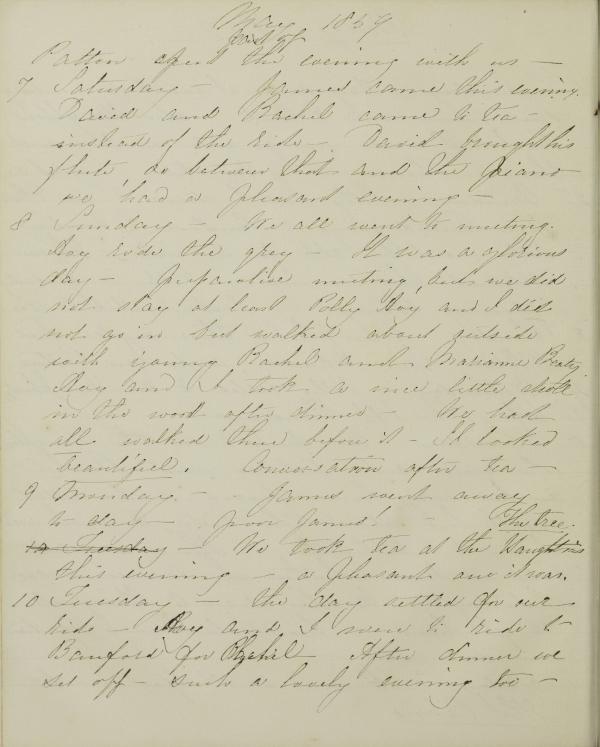 May 1859
part of
Patton spent the evening with us —
7 Saturday — James came this evening.
David and Rachel came to tea —
instead of the ride — David brought his
flute, so between that and the piano
we had a pleasant evening —
8 Sunday — We all went to meeting.
Hoy rode the grey — It was a glorious
day — preparative meeting, but we did
not stay at least Polly Hoy and I did
not go in but walked about outside
with young Rachel and Marianne Beaty
Hoy and I took a nice little stroll
in the wood after dinner — We had
all walked there before it — It looked
beautiful. Conversation after tea —
9 Monday — James went away
to day — poor James! — The tree.
10 Tuesday — We took tea at the
this evening — a pleasant one it was.
10 Tuesday — the day settled for our
ride — Hoy and I were to ride to
Banford for Rachel After dinner we
set off — such a lovely evening too —